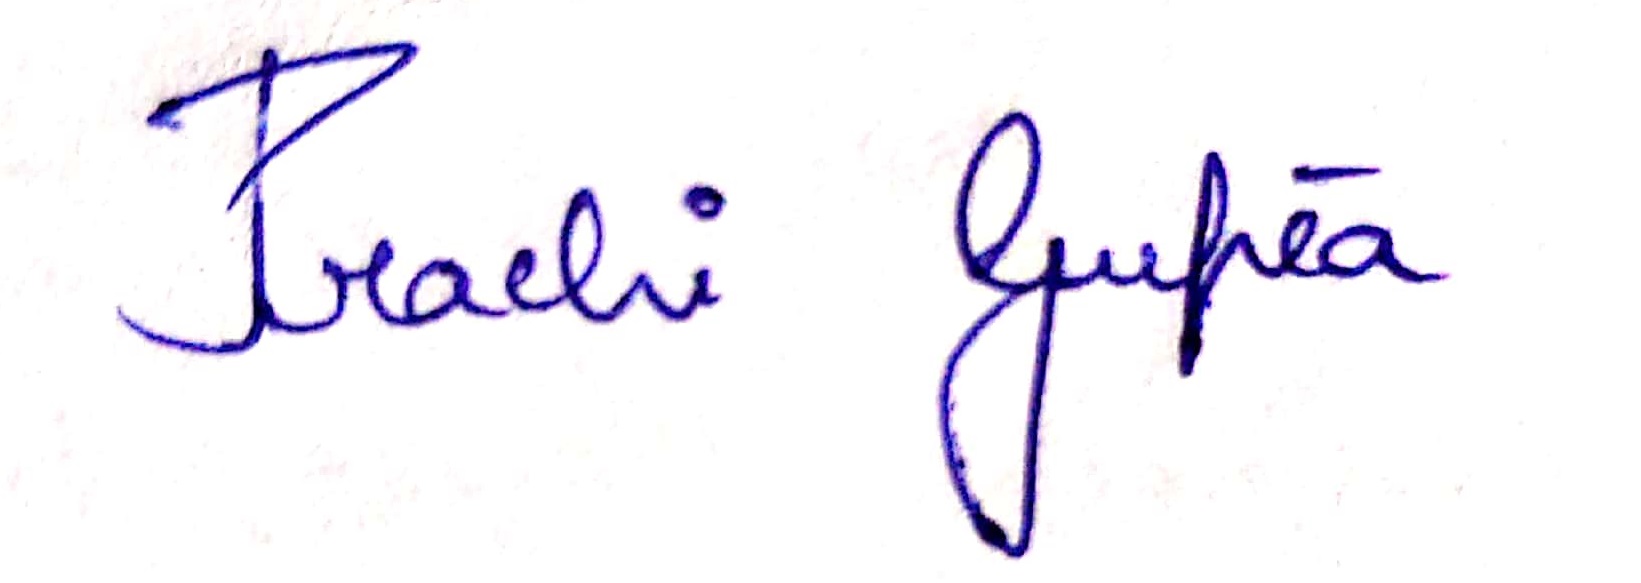 Prachi Gupta